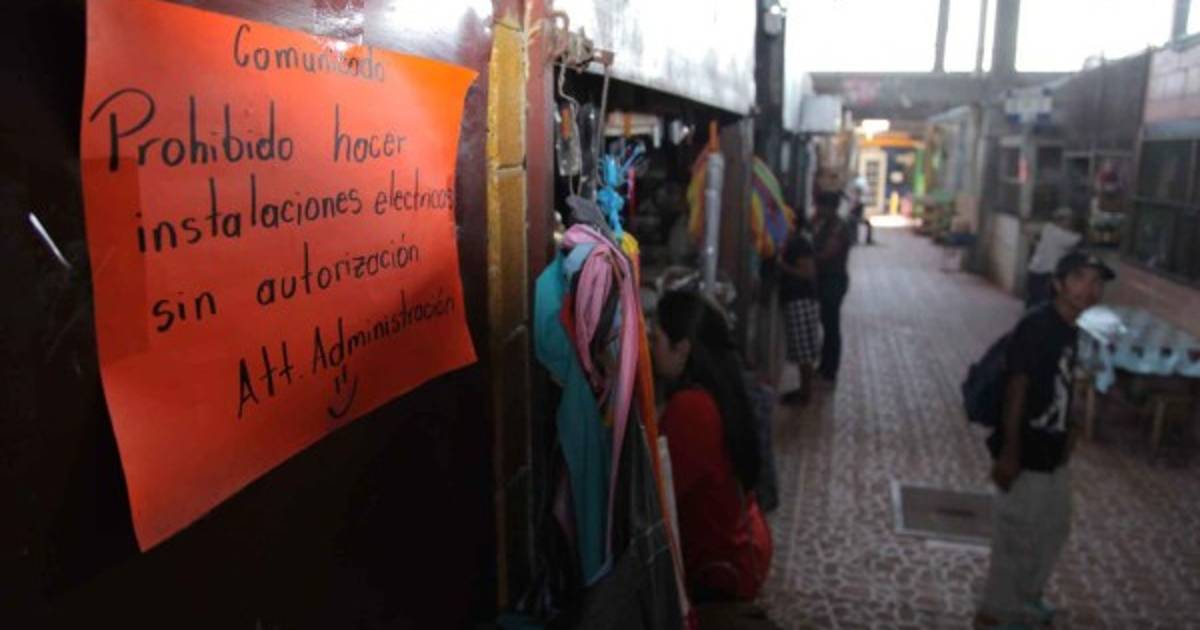 Comunicado
Prohibido hacer
instalaciones electricas
sin autorización
Att. Administración